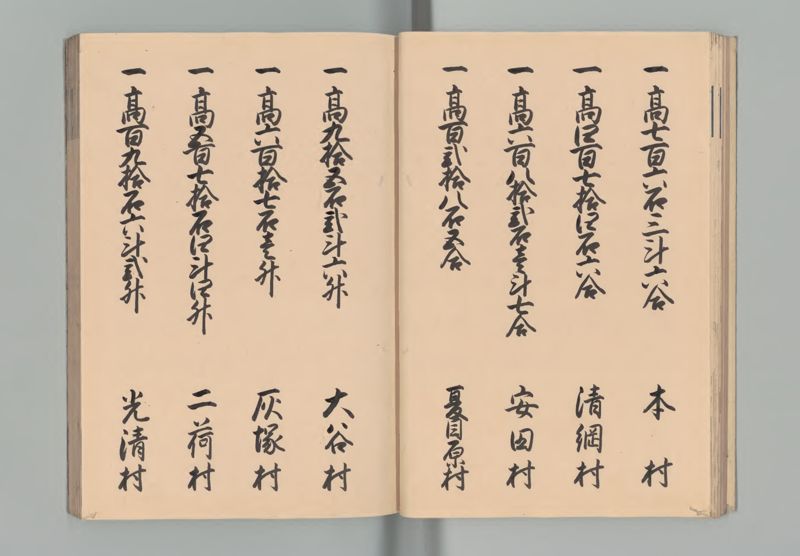 一高七百六石三斗六合 本村
一高四百七拾四石六合 清綱村
一高六百八拾弐石壱斗七合 安田村
一高百弐拾八石五合 夏目原村
一高九拾五石弐斗六升 大谷村
一高六百拾七石壱升 灰塚村
一高五百七拾石四斗四升 二荷村
一高百九拾石六斗弐升 光清村